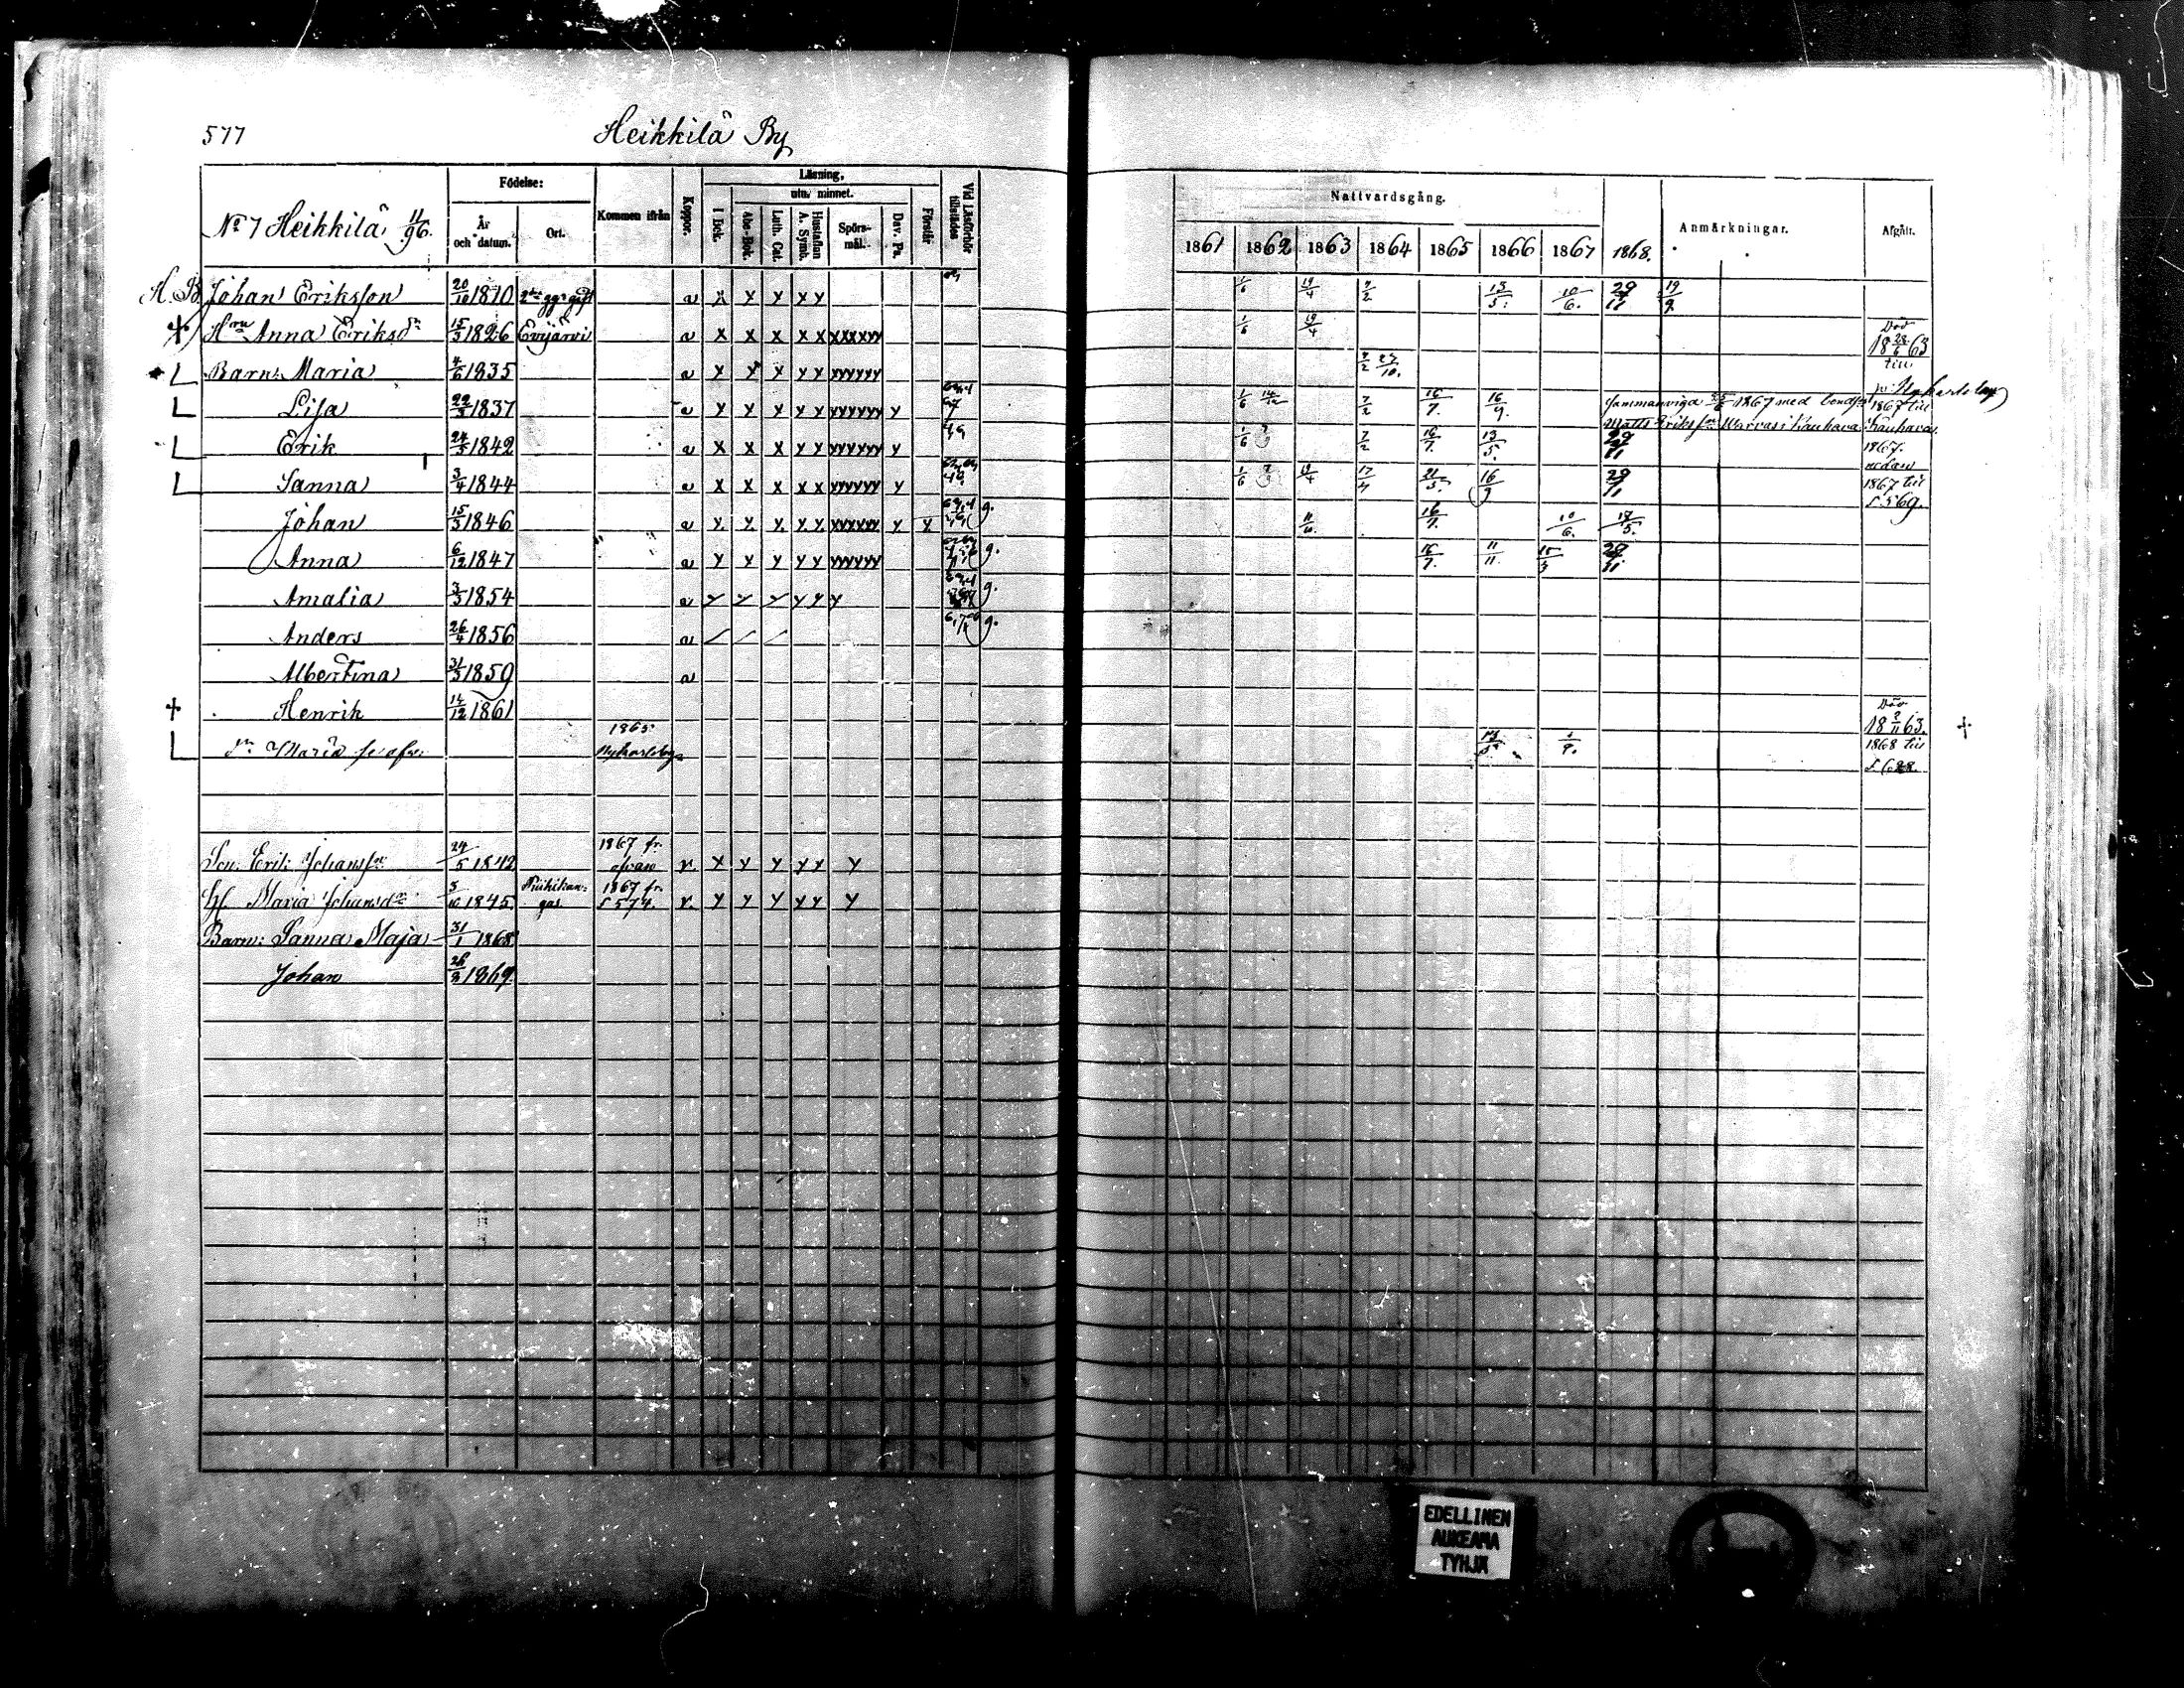 577
Heikkilä By
Födelse:
Läsning,
utur minnet.
No 7 Heikkilä 11/96.
År och datum.
Ort.
Kommen ifrån
Koppor.
I Bok.
Abc-Bok.
Luth. Cat.
Hustaflan A. Symb.
Spörs-mål.
Dav. Ps.
Förstår
Vid Läsförhör tillstädes
Nattvardsgång.
1861 1862 1863 1864 1865 1866 1867 1868.
Anmärkningar.
Afgått.
Johan Eriksson 20/10 1810 v x y y x y 1/6 19/4 7/2 13/5. 10/6. 29/11 19/9
Anna Eriksdr 15/3 1826 Evijärvi v x x x x x xxxxyy 1/6 19/4 Död 18 28/6 63
Barn: Maria 4/6 1835 v y y y y y yyyyyy 7/2 23/10. till Nykarleby
Lisa 22/3 1837 v y y y y y yyyyyy y 1/6 14/12 7/2 16/7. 16/9. Sammanvigd 25/6 1867 med bondes.
1867 till
Matts Eriksson Warvas i Kauhava Kauhava.
Erik 24/5 1842 v x x x y y yyyyyy y 1/6 7/2 16/7. 13/5. 29/11 1867. nedan
Sanna 3/4 1844 v x x x x x yyyyyy y 1/6 19/4 17/4 21/5. 16/9 29/11 1867 till S. 569.
Johan 15/3 1846 v y y y y y xxxxxx y y g. 11/6. 16/7. 10/6. 18/5.
Anna 6/12 1847 v y y y y y yyyyyy g. 16/7. 11/11. 15/3 29/11.
Amalia 3/3 1854 v y y y y y y g.
Anders 26/4 1856 v g.
Albertina 31/3 1859 v
Henrik 14/12 1861 Död 18 9/11 63.
Maria se ofvan 1865 Nykarleby 13/5. 1868 till S. 628.
Son: Erik Johansson 24/5 1842 1867 fr. ofvan v. x y y y x y
H. Maria Johansdr 3/10 1845. 1867 fr. S. 574. v. y y y y y y
Barn: Sanna Maja 31/1 1868
Johan 26/3 1869.
EDELLINEN
AUKEAMA
TYHJÄ